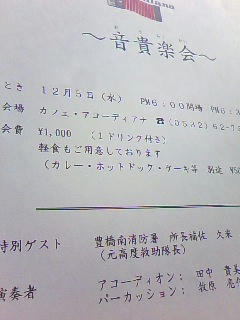 ～音貴楽会～
とき 12月5日(水) PM6:00開場 PM6:3
会場 カフェ・アコーディアナ ☎(0532)62-7
会費 ¥1,000 (1ドリンク付き)
軽食もご用意しております
(カレー・ホットドック・ケーキ等 別途 ¥50
特別ゲスト 豊橋南消防署 所長補佐 久米
(元高度救助隊長)
演奏者 アコーディオン: 田中
パーカッション: 牧原 亮